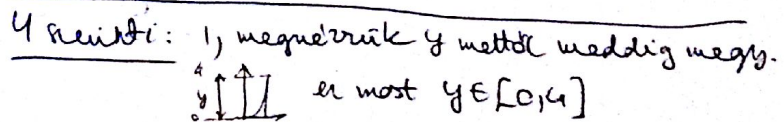 y szerinti: 1, megnézzük y mettől meddig megy.
4
y
0
ez most y ∈ [0,4]